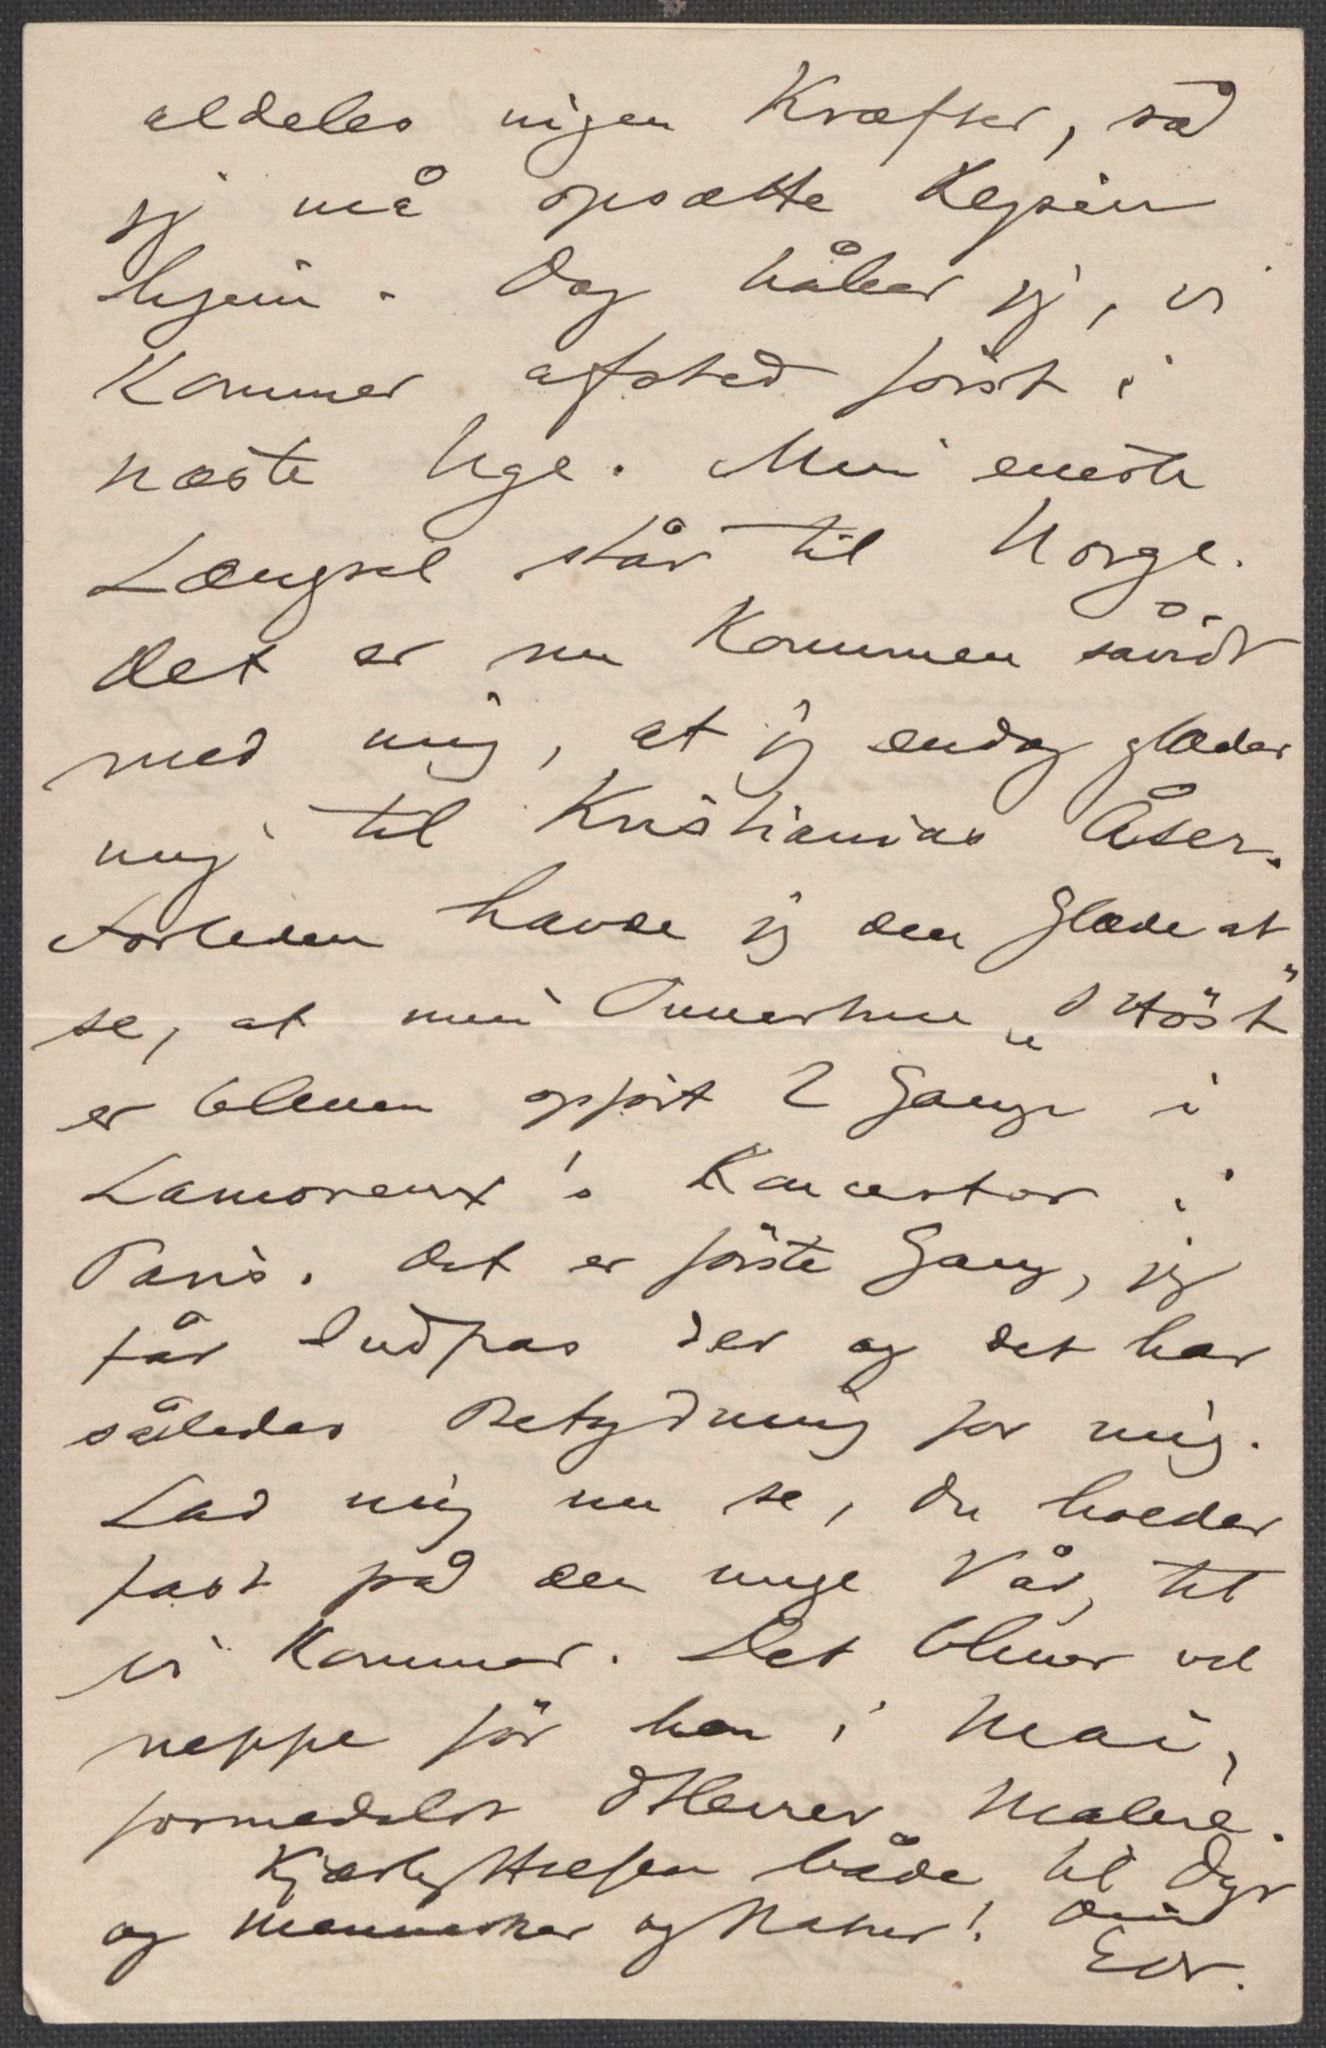 aldeles ingen Kræfter, så
jeg må opsætte Rejsen
hjem. Dog håber jeg, vi
kommer afsted først i
næste Uge. Min eneste
Længsel står til Norge.
Det er nu kommen såvidt
med mig, at jeg endog glæder
mig til Kristianias Åser.
Forleden havde jeg den Glæde at
se, at min Ouverture „I Höst“
er bleven opført 2 Gange i
Lamoreux's Koncerter i
Paris. Det er første Gang, jeg
får Indpas der og det har
således Betydning for mig.
Lad mig nu se, du holder
fast på den unge Vår, til
vi kommer. Det bliver vel
neppe för hen i Mai,
formedelst Malene.
Kjærlig Hilsen både til Dyr
og Mennesker og Natur! Din
Edv.